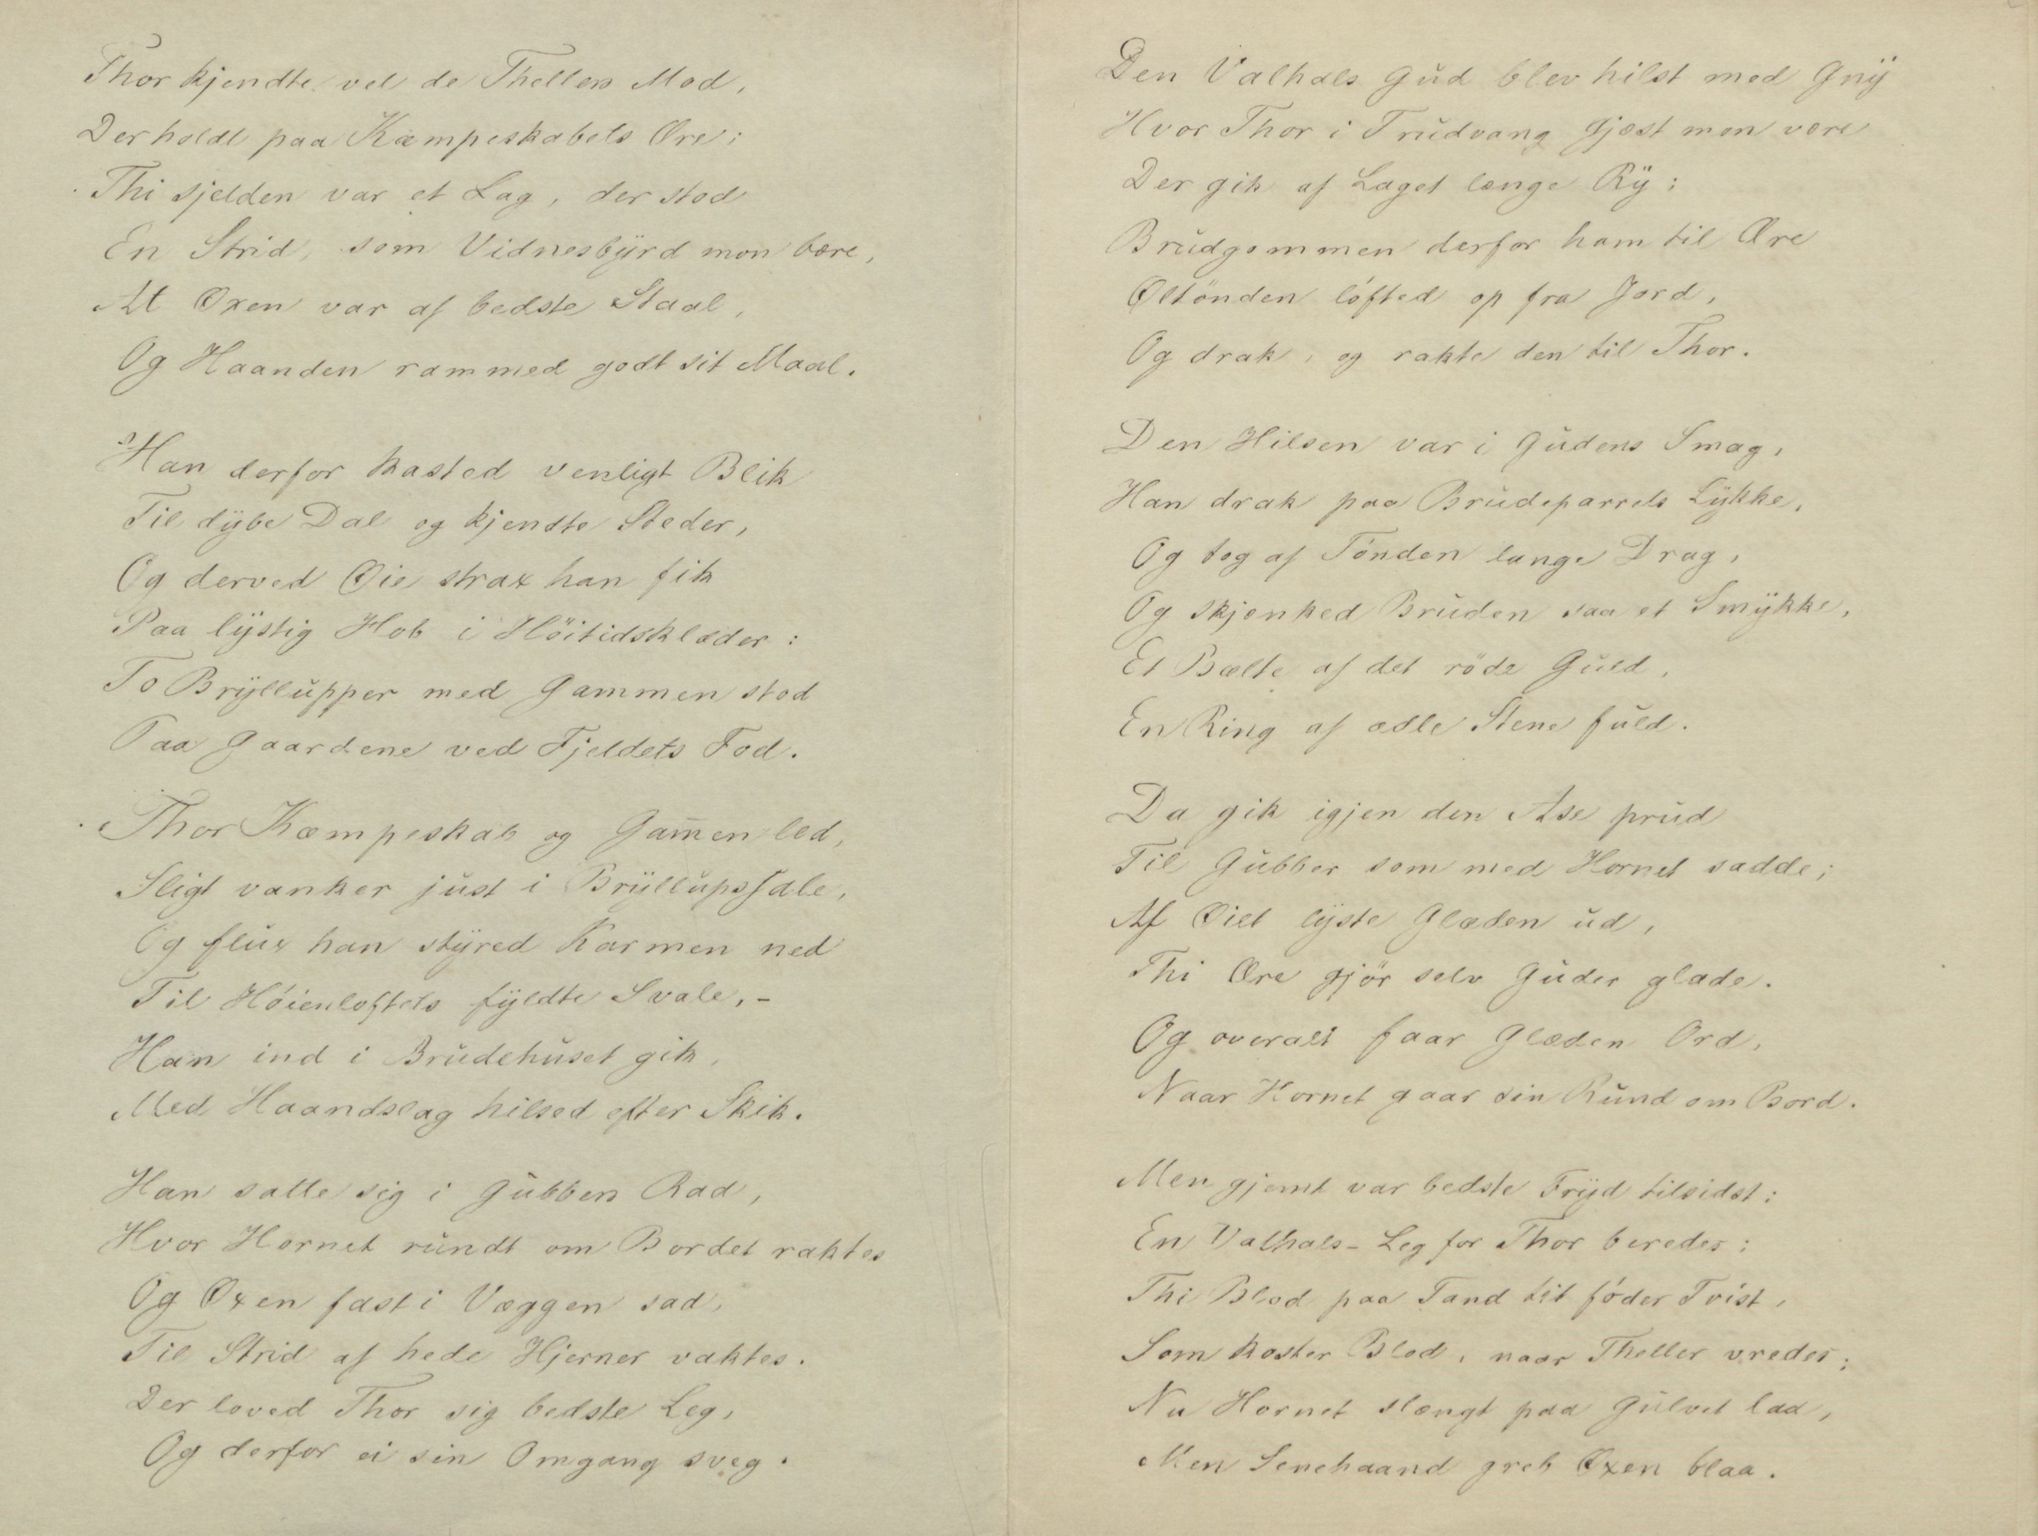 Thor kjendte vel de Thellers Mod,
Der holdt paa Kæmpeskabets Ære;
Thi sjelden var et Lag, der stod
En Strid, som Vidnesbÿrd mon bære,
At Øxen var af bedste Staal,
Og Haanden rammed godt sit Maal.
Han derfor kasted venligt Blik
Til dÿbe Dal og kjendte Steder,
Og derved Øie strax han fik
Paa lÿstig Hob i Höitidsklæder:
To Brÿllupper med Gammen stod
Paa Gaardene ved Fjeldets Fod.
Thor Kæmpeskab og Gam̅en led,
Sligt vanker just i Brÿllupsſale,
Og flux han stÿred Karmen ned
Til Höienloftets fÿldte Svale, -
Han ind i Brudehuset gik,
Med Haandslag hilsed efter Skik.
Han satte sig i Gubbers Rad,
Hvor Hornet rundt om Bordet raktes
Og Øxen fast i Væggen sad,
Til Strid af hede Hjerner vaktes.
Der loved Thor sig bedste Leg,
Og derfor ei sin Omgang sveg.
Den Valhals Gud blev hilst med Gnÿ
Hvor Thor i Trudvang Gjæst mon være
Der gik af Laget længe Rÿ:
Brudgommen derfor ham til Ære
Øltönden löfted op fra Jord,
Og drak, og rakte den til Thor.
Den Hilsen var i Gudens Smag,
Han drak paa Brudeparrets Lÿkke,
Og tog af Tönden lange Drag,
Og skjænked Bruden saa et Smÿkke,
Et Bælte af det röde Guld,
En Ring af ædle Stene fuld.
Da gik igjen den Ase prud
Til Gubber som med Hornet sadde;
Af Øiet lÿste Glæden ud,
Thi Ære gjör selv Guder glade.
Og overalt faar Glæden Ord,
Naar Hornet gaar sin Rund om Bord.
Men gjemt var bedste Frÿd tilsidst:
En Valhals-Leg for Thor beredes:
Thi Blod paa Tand tit föder Tvist,
Som koster Blod, naar Theller vredes;
Nu Hornet slængt paa Gulvet laa,
Men Senehaand greb Øxen blaa.